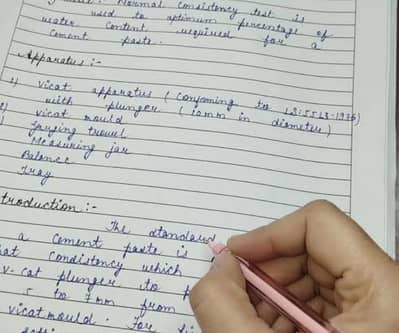 Normal consistency test is
used to optimum percentage of
water content required for a
cement paste.
Apparatus :-
1) Vicat apparatus (conforming to IS:5513-1976)
with plunger (10mm in diameter)
vicat mould
Gauging trowel
Measuring jar
Balance
Tray
troduction :-
The standard
a cement paste is
at consistency which
v-cat plunger to
5 to 7mm from
vicat mould. For